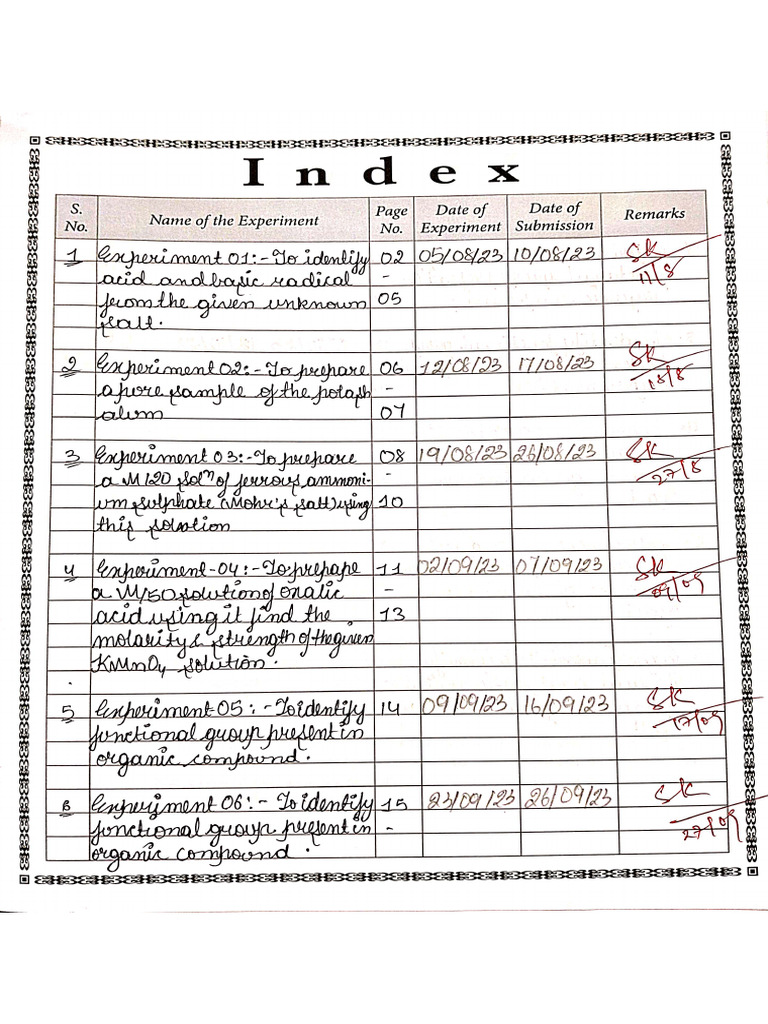 Index
S. No. Name of the Experiment Page No. Date of Experiment Date of Submission Remarks
1 Experiment 01:- To identify 02 05/08/23 10/08/23 SK
acid and basic radical - 11/8
from the given unknown 05
salt.
2 Experiment 02:- To prepare 06 12/08/23 17/08/23 SK
a pure sample of the potash - 18/8
alum 07
3 Experiment 03:- To prepare 08 19/08/23 26/08/23 SK
a M/20 solⁿ of ferrous ammoni- - 27/8
um sulphate (Mohr's salt) using 10
this solution
4 Experiment-04:- To prepape 11 02/09/23 07/09/23 SK
a M/50 solution of oxalic - 09/09
acid using it find the 13
molarity & strength of the given
KMnO₄ solution.
5 Experiment 05:- To identify 14 09/09/23 16/09/23 SK
functional group present in 17/09
organic compound.
6 Experiment 06:- To identify 15 23/09/23 26/09/23 SK
functional group present in - 27/09
organic compound.